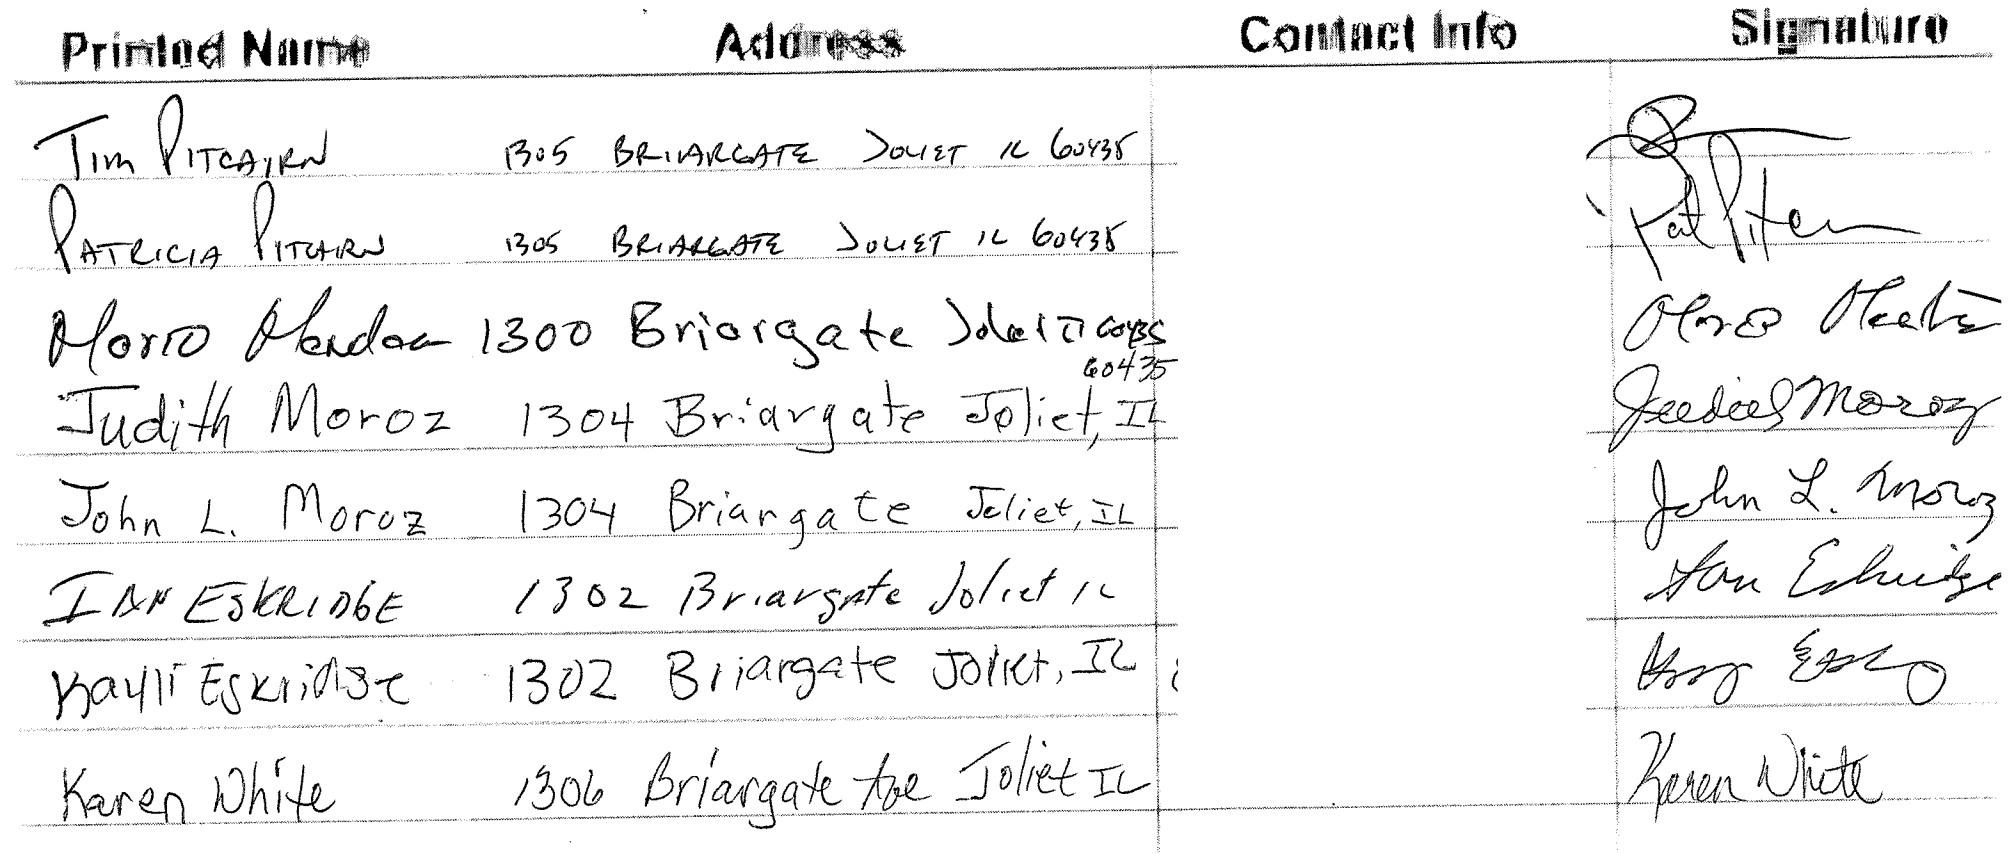 Printed Name Address Contact Info Signature
TIM PITCAIRN 1305 BRIARGATE JOLIET IL 60435
PATRICIA PITCAIRN 1305 BRIARGATE JOLIET IL 60435 Pat
1300 Briargate Joliet Il 60435
60435
Judith Moroz 1304 Briargate Joliet, IL Judith Moroz
John L. Moroz 1304 Briargate Joliet, IL John L. Moroz
IAN ESKRIDGE 1302 Briargate Joliet IL Ian Eskridge
Kaylii Eskridge 1302 Briargate Joliet, IL
Karen White 1306 Briargate Joliet IL Karen White